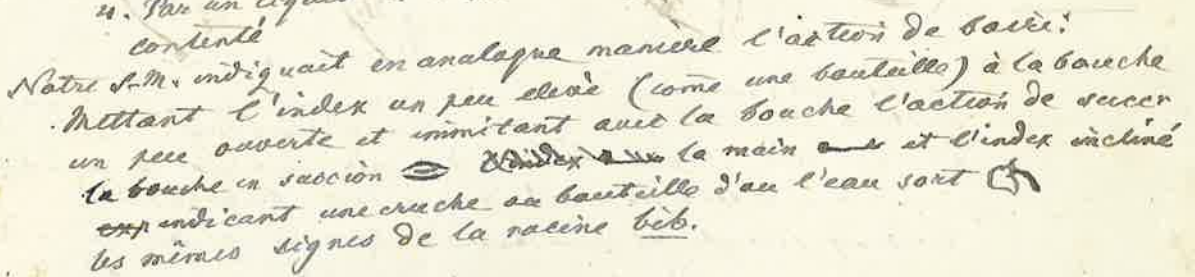 4. Par un
contenté
Notre S-M. indiquait en analogue manière l'action de boire:
Mettant l'index un peu elevé (come une bouteille) à la bouche
un peu ouverte et immitant avec la bouche l'action de succer
la bouche en succion la main et l'index incliné
indicant une cruche ou bouteille d'ou l'eau sort
les mêmes signes de la racine bib.